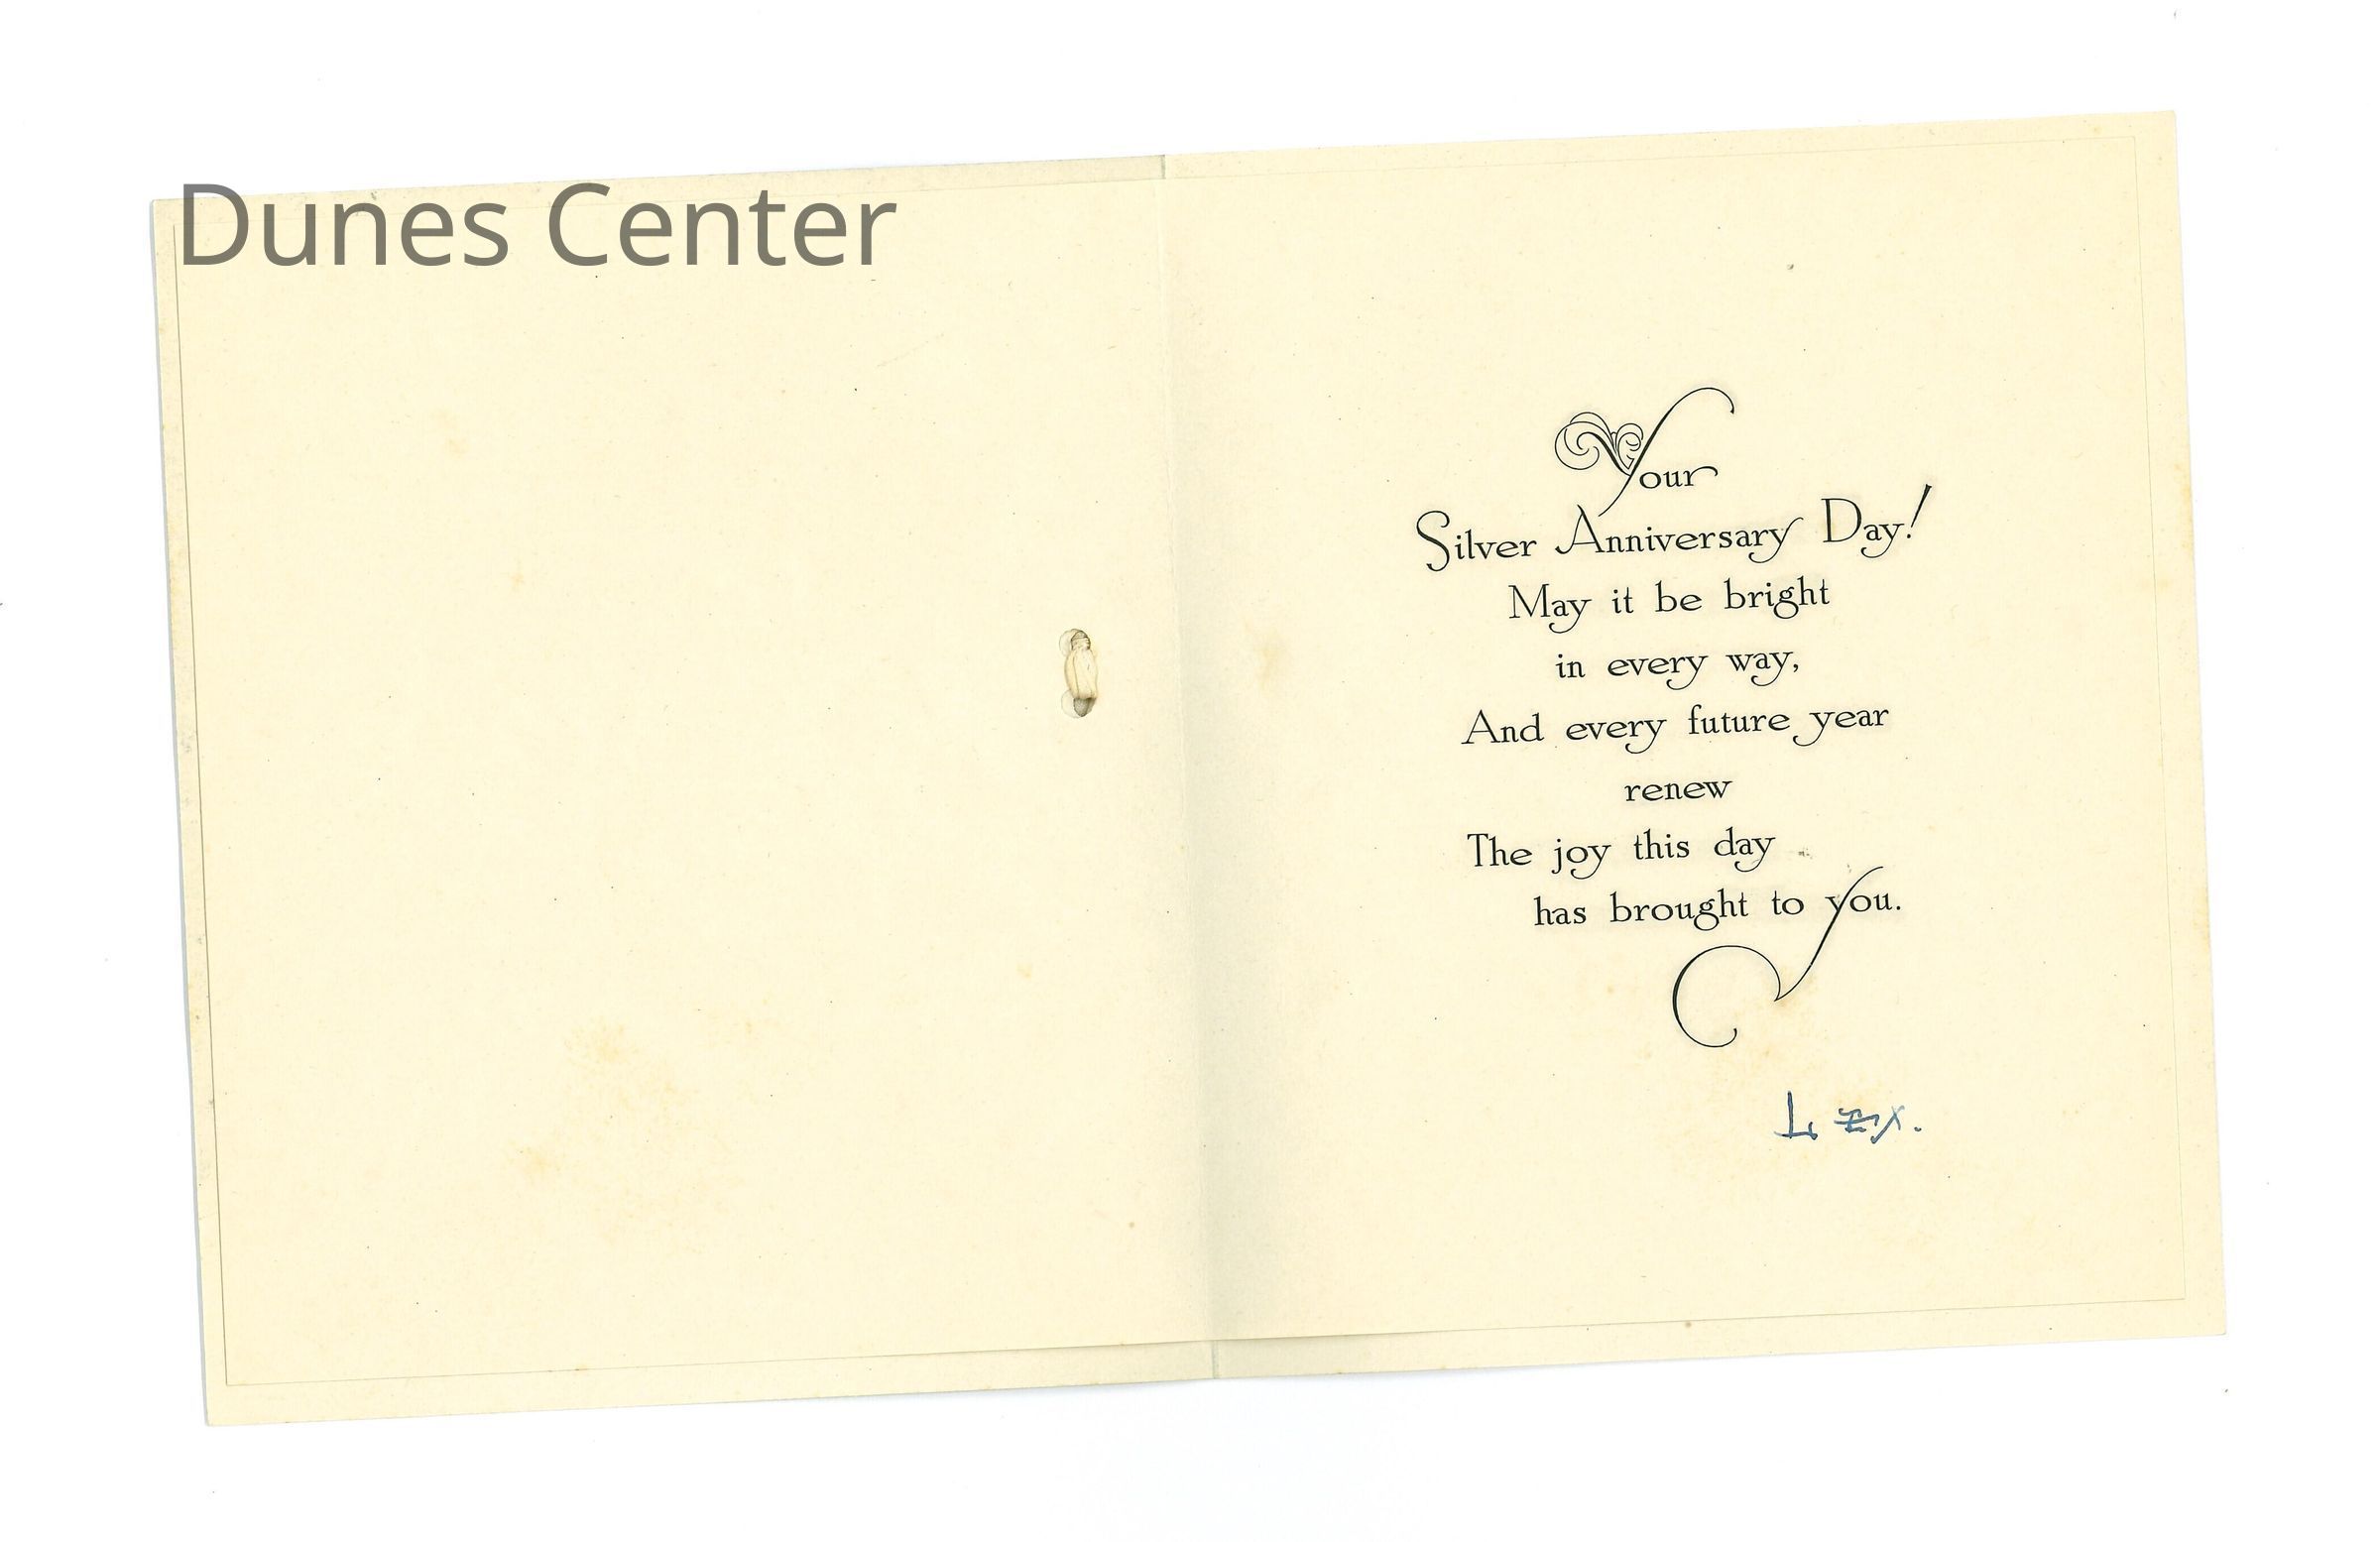 Dunes Center
Your
Silver Anniversary Day!
May it be bright
in every way,
And every future year
renew
The joy this day
has brought to you.